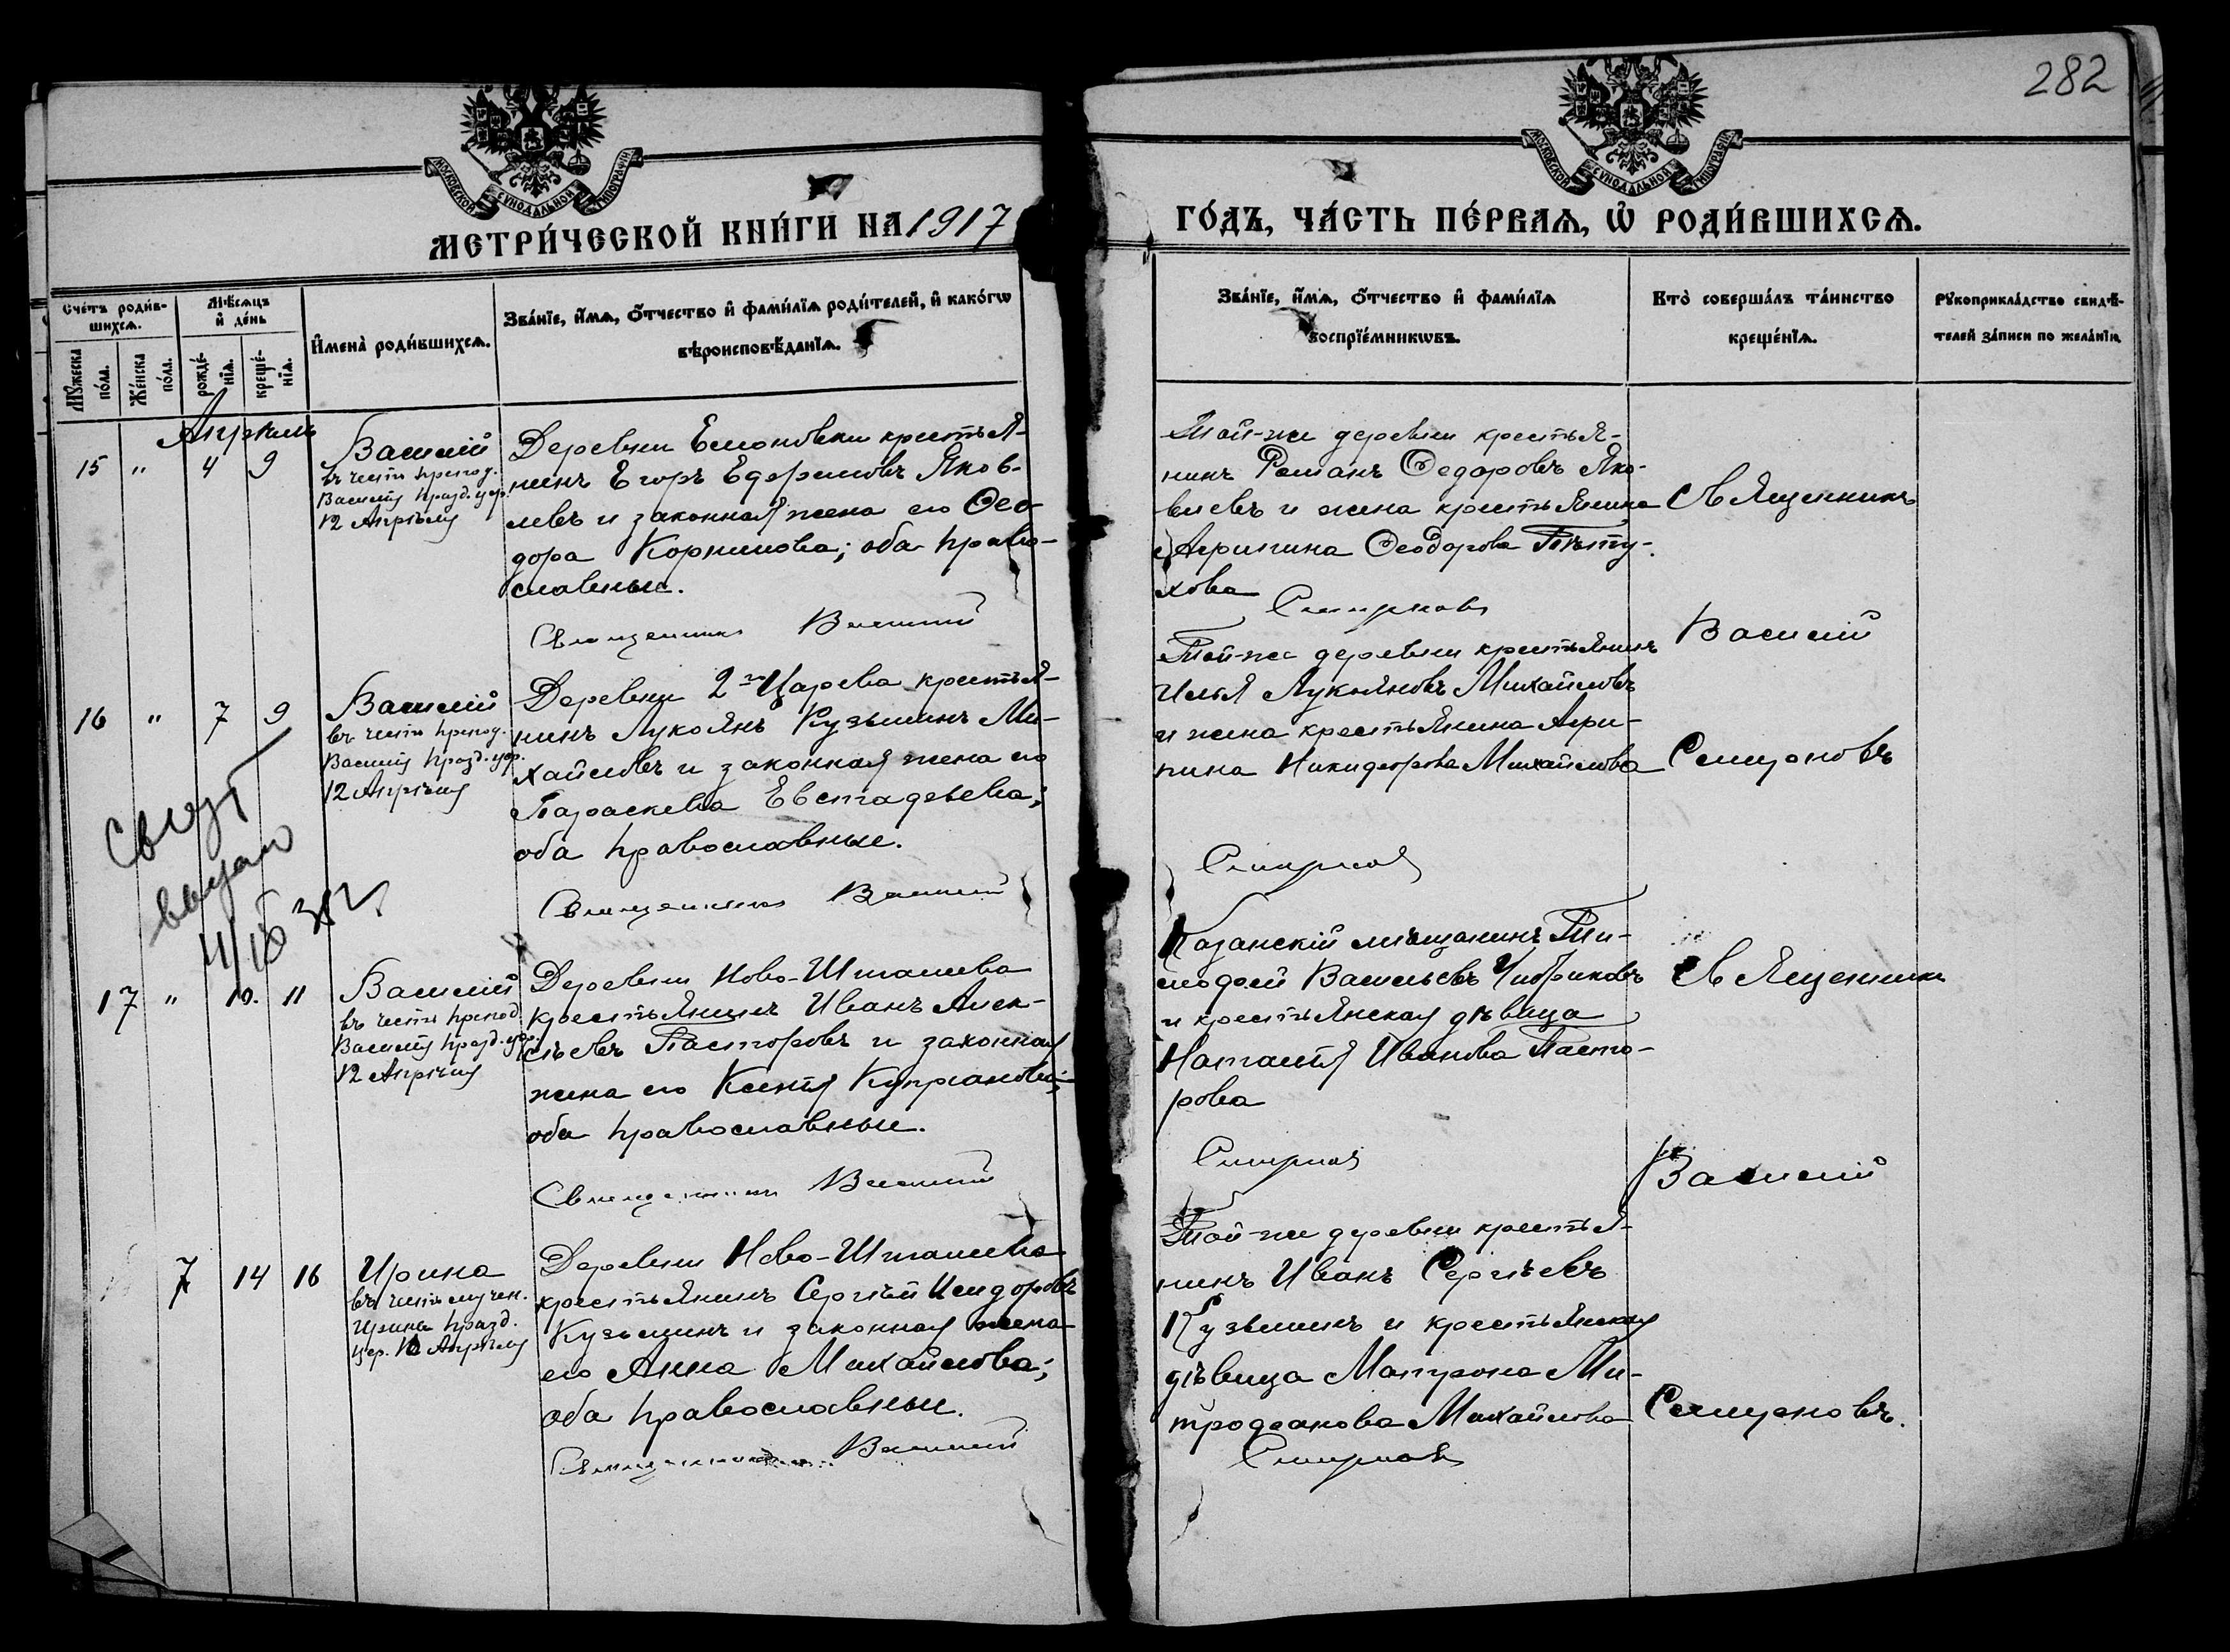 282
МОСКОВСКОЙ СѴНОДАЛЬНОЙ ТИПОГРАФІИ
МОСКОВСКОЙ СѴНОДАЛЬНОЙ ТИПОГРАФІИ
МЕТРИ́ЧЕСКОЙ КНИ́ГИ НА 1917
ГО́ДЪ, ЧА́СТЬ ПЕ́РВАѦ, Ѡ҆ РОДИ́ВШИХСѦ.
Сче́тъ роди́в-
шихсѧ.
Мѣ́сѧцъ
и҆ де́нь
Мꙋ́жеска
по́ла.
Же́нска
по́ла.
рожде́-
нїѧ.
креще́-
нїѧ.
И҆мена̀ роди́вшихсѧ.
Зва́нїе, и҆́мѧ, ѻ҆́тчество и҆ фами́лїѧ роди́телей, и҆ како́гѡ
вѣроисповѣ́данїѧ.
Зва́нїе, и҆́мѧ, ѻ҆́тчество и҆ фами́лїѧ
воспрїе́мникѡвъ.
Кто̀ соверша́лъ та́инство
креще́нїѧ.
Рꙋкоприкла́дство свидѣ́-
телей за́писи по жела́нїю.
Апрѣль
15 " 4 9
Василій
въ честь препод.
Василія празд. цер.
12 Апрѣля
Деревни Емоновски крестья-
нинъ Егоръ Ефремовъ Яков-
левъ и законная жена его Фео-
дора Корнилова; оба право-
славные.
Священникъ Василий
Той-же деревни крестья-
нинъ Романъ Федоровъ Яко-
влевъ и жена крестьянина
Агрипина Феодорова Пѣту-
хова
Смирновъ
Священникъ
Василій
Смирновъ
16 " 7 9
Василій
въ честь препод.
Василія празд. цер.
12 Апрѣля
Деревни 2го Царева крестья-
нинъ Лукоянъ Кузьминъ Ми-
хайловъ и законная жена его
Параскева Евстафьева;
оба православные.
Священникъ Василий
Той-же деревни крестьянинъ
Илья Лукояновъ Михайловъ
и жена крестьянина Агри-
пина Никифорова Михайлова
Смирновъ
выдано
17 " 10. 11
Василій
въ честь препод.
Василія празд. цер.
12 Апрѣля
Деревни Ново-Шташева
крестьянинъ Иванъ Алек-
сѣевъ Пасторовъ и законная
жена его Ксенія Купріанова;
оба православные.
Священникъ Василий
Казанскій мѣщанинъ Ти-
мофей Васильевъ Чибриковъ
и крестьянская дѣвица
Наталія Иванова Пасто-
рова
Смирновъ
Священникъ
Василій
Смирновъ.
7 14 16
Ирина
въ честь мучен.
Ирины празд.
цер. 16 Апрѣля
Деревни Ново-Шташева
крестьянинъ Сергѣй Исидоровъ
Кузьминъ и законная жена
его Анна Михайлова;
оба православные.
Священникъ Василий
Той-же деревни крестья-
нинъ Иванъ Сергѣевъ
Кузьминъ и крестьянская
дѣвица Матрона Ми-
трофанова Михайлова
Смирновъ